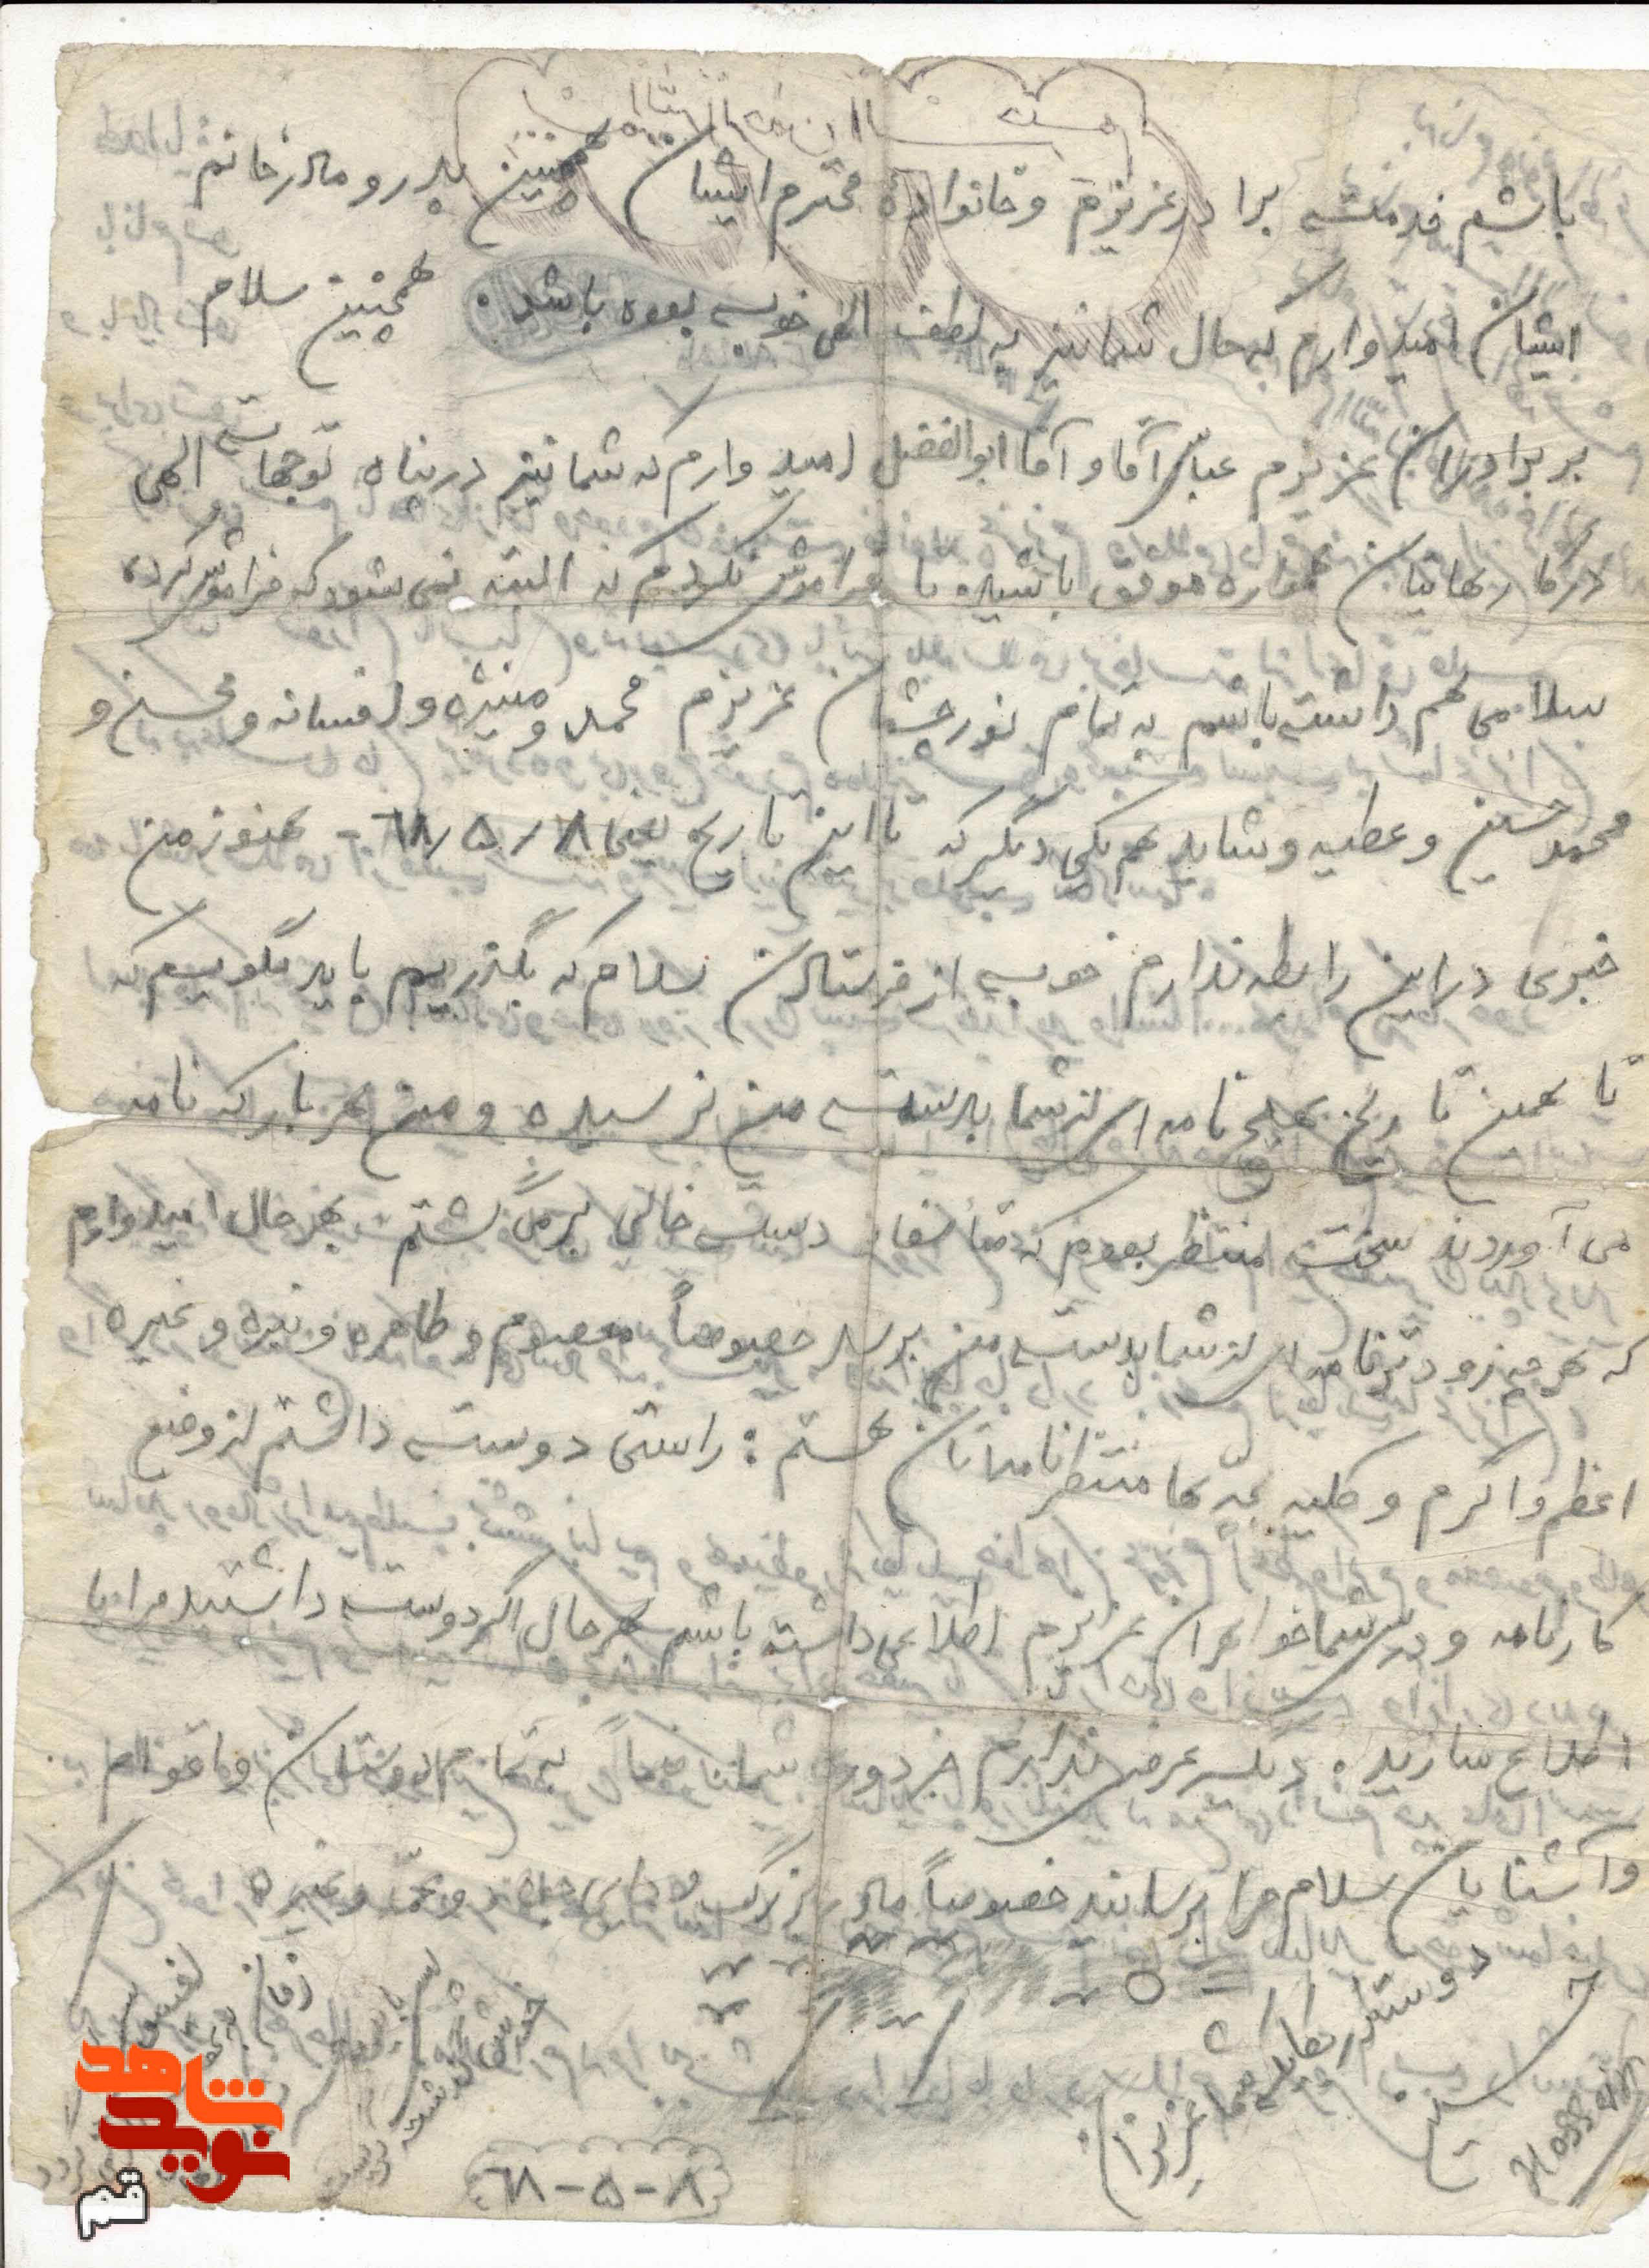 باشم خدمت برادر عزیزم و خانواده محترم ایشان همچنین پدر و مادر خانم
ایشان امیدوارم که حال شما نیز به لطف الهی خوب بوده باشد. همچنین سلام
بر برادران عزیزم عباس آقا و آقا ابوالفضل امیدوارم که شما نیز در پناه توجهات الهی
در کارهایتان همواره موفق باشید. تا فراموش نکردم که البته نمی شود که فراموش کرد،
سلامی هم داشته باشم به تمام نورچشمان عزیزم محمد و منیژه و افسانه و محسن و
محمد حسین و عطیه و شاید هم یکی دیگر که تا این تاریخ یعنی ۶۸/۵/۸ - هنوز من
خبری در این رابطه ندارم خوب از فرستادن سلام که بگذریم باید بگویم که
تا همین تاریخ هیچ نامه ای از شما بدست من نرسیده و من هر بار که نامه
می آوردند سخت منتظر بودم که متأسفانه دست خالی برمی گشتم بهر حال امیدوارم
که هر چه زودتر نامه ای از شما بدست من برسد خصوصاً معصوم و طاهره و غیره
اعظم و اکرم و کلیه بچه ها منتظر نامه تان هستم: راستی دوست داشتم از وضع
کارنامه و درس شما خواهران عزیزم اطلاعی داشته باشم بهر حال اگر دوست داشتید مرا با
اطلاع سازید. دیگر عرضی ندارم جز دوری شما ضمناً به تمام دوستان و اقوام
و آشنایان سلام مرا برسانید خصوصاً مادر بزرگ و دایی و عمه و غیره
دوستدار همگی شما عزیزان
حسین
Hossein
۶۸-۵-۸
نوید شاهد
قم